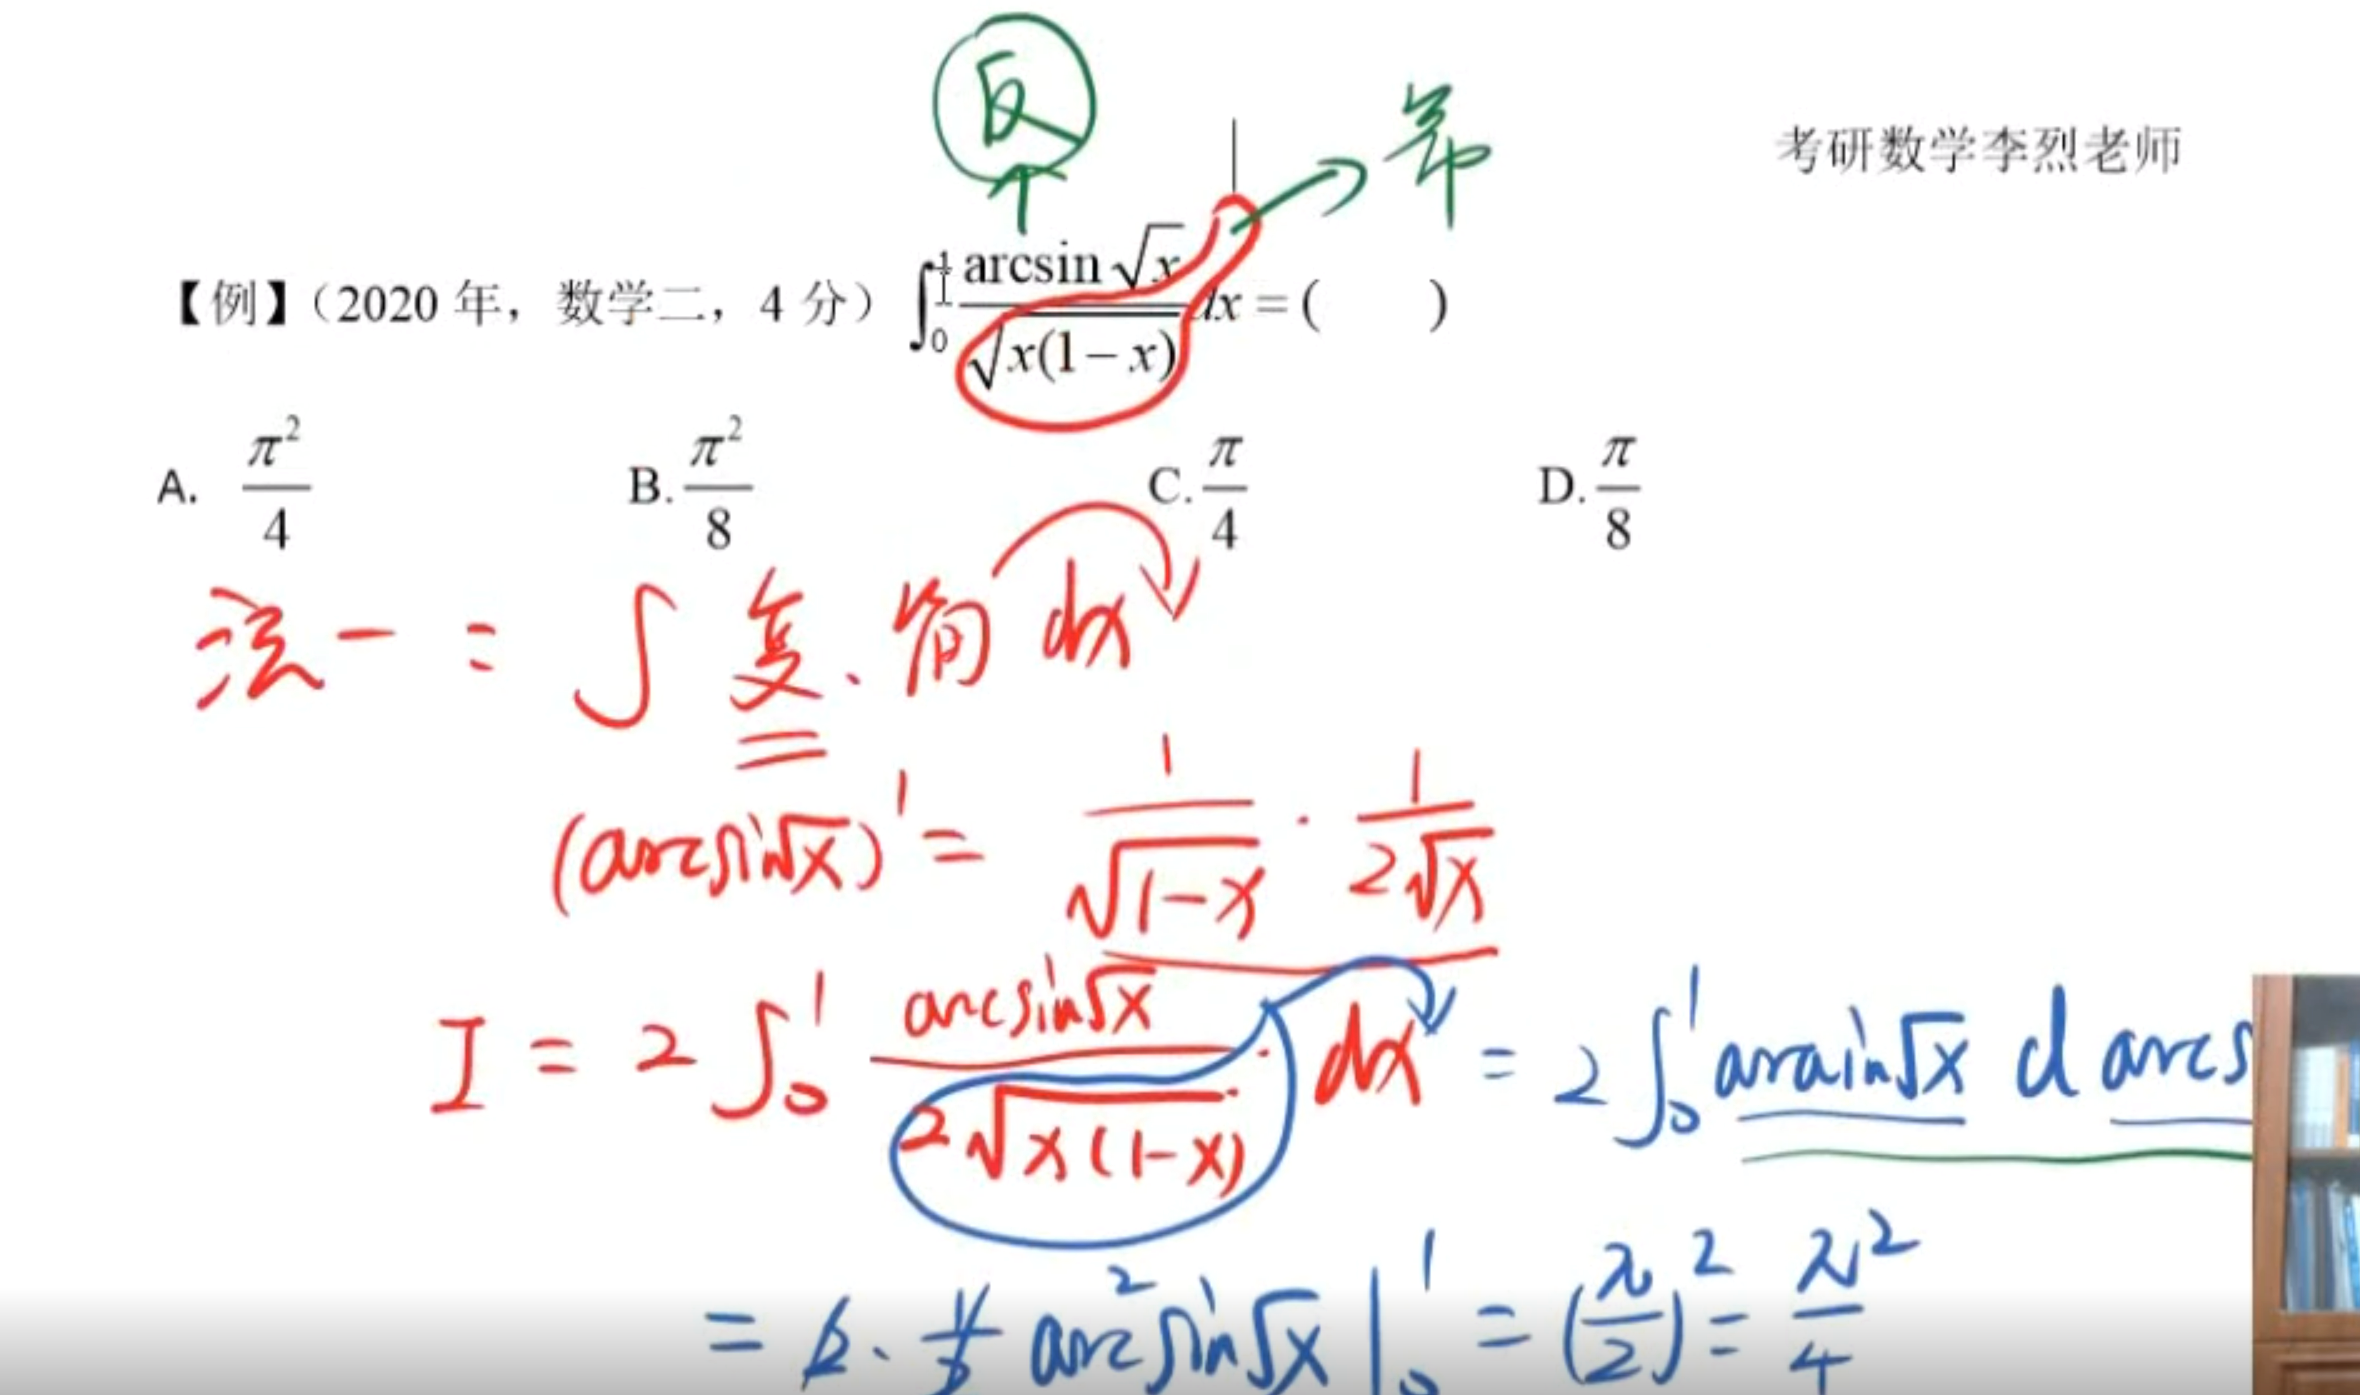 反
幂
考研数学李烈老师
【例】(2020 年, 数学二, 4 分) ∫₀¹ arcsin√x / √(x(1−x)) dx = (    )
A. π²/4 B. π²/8 C. π/4 D. π/8
法一: ∫ 复·简 dx
(arcsin√x)' = 1/√(1-x) · 1/(2√x)
I = 2∫₀¹ arcsin√x / (2√(x(1-x))) dx = 2∫₀¹ arcsin√x d arcs
= 2 · 1/2 arc²sin√x |₀¹ = (π/2)² = π²/4